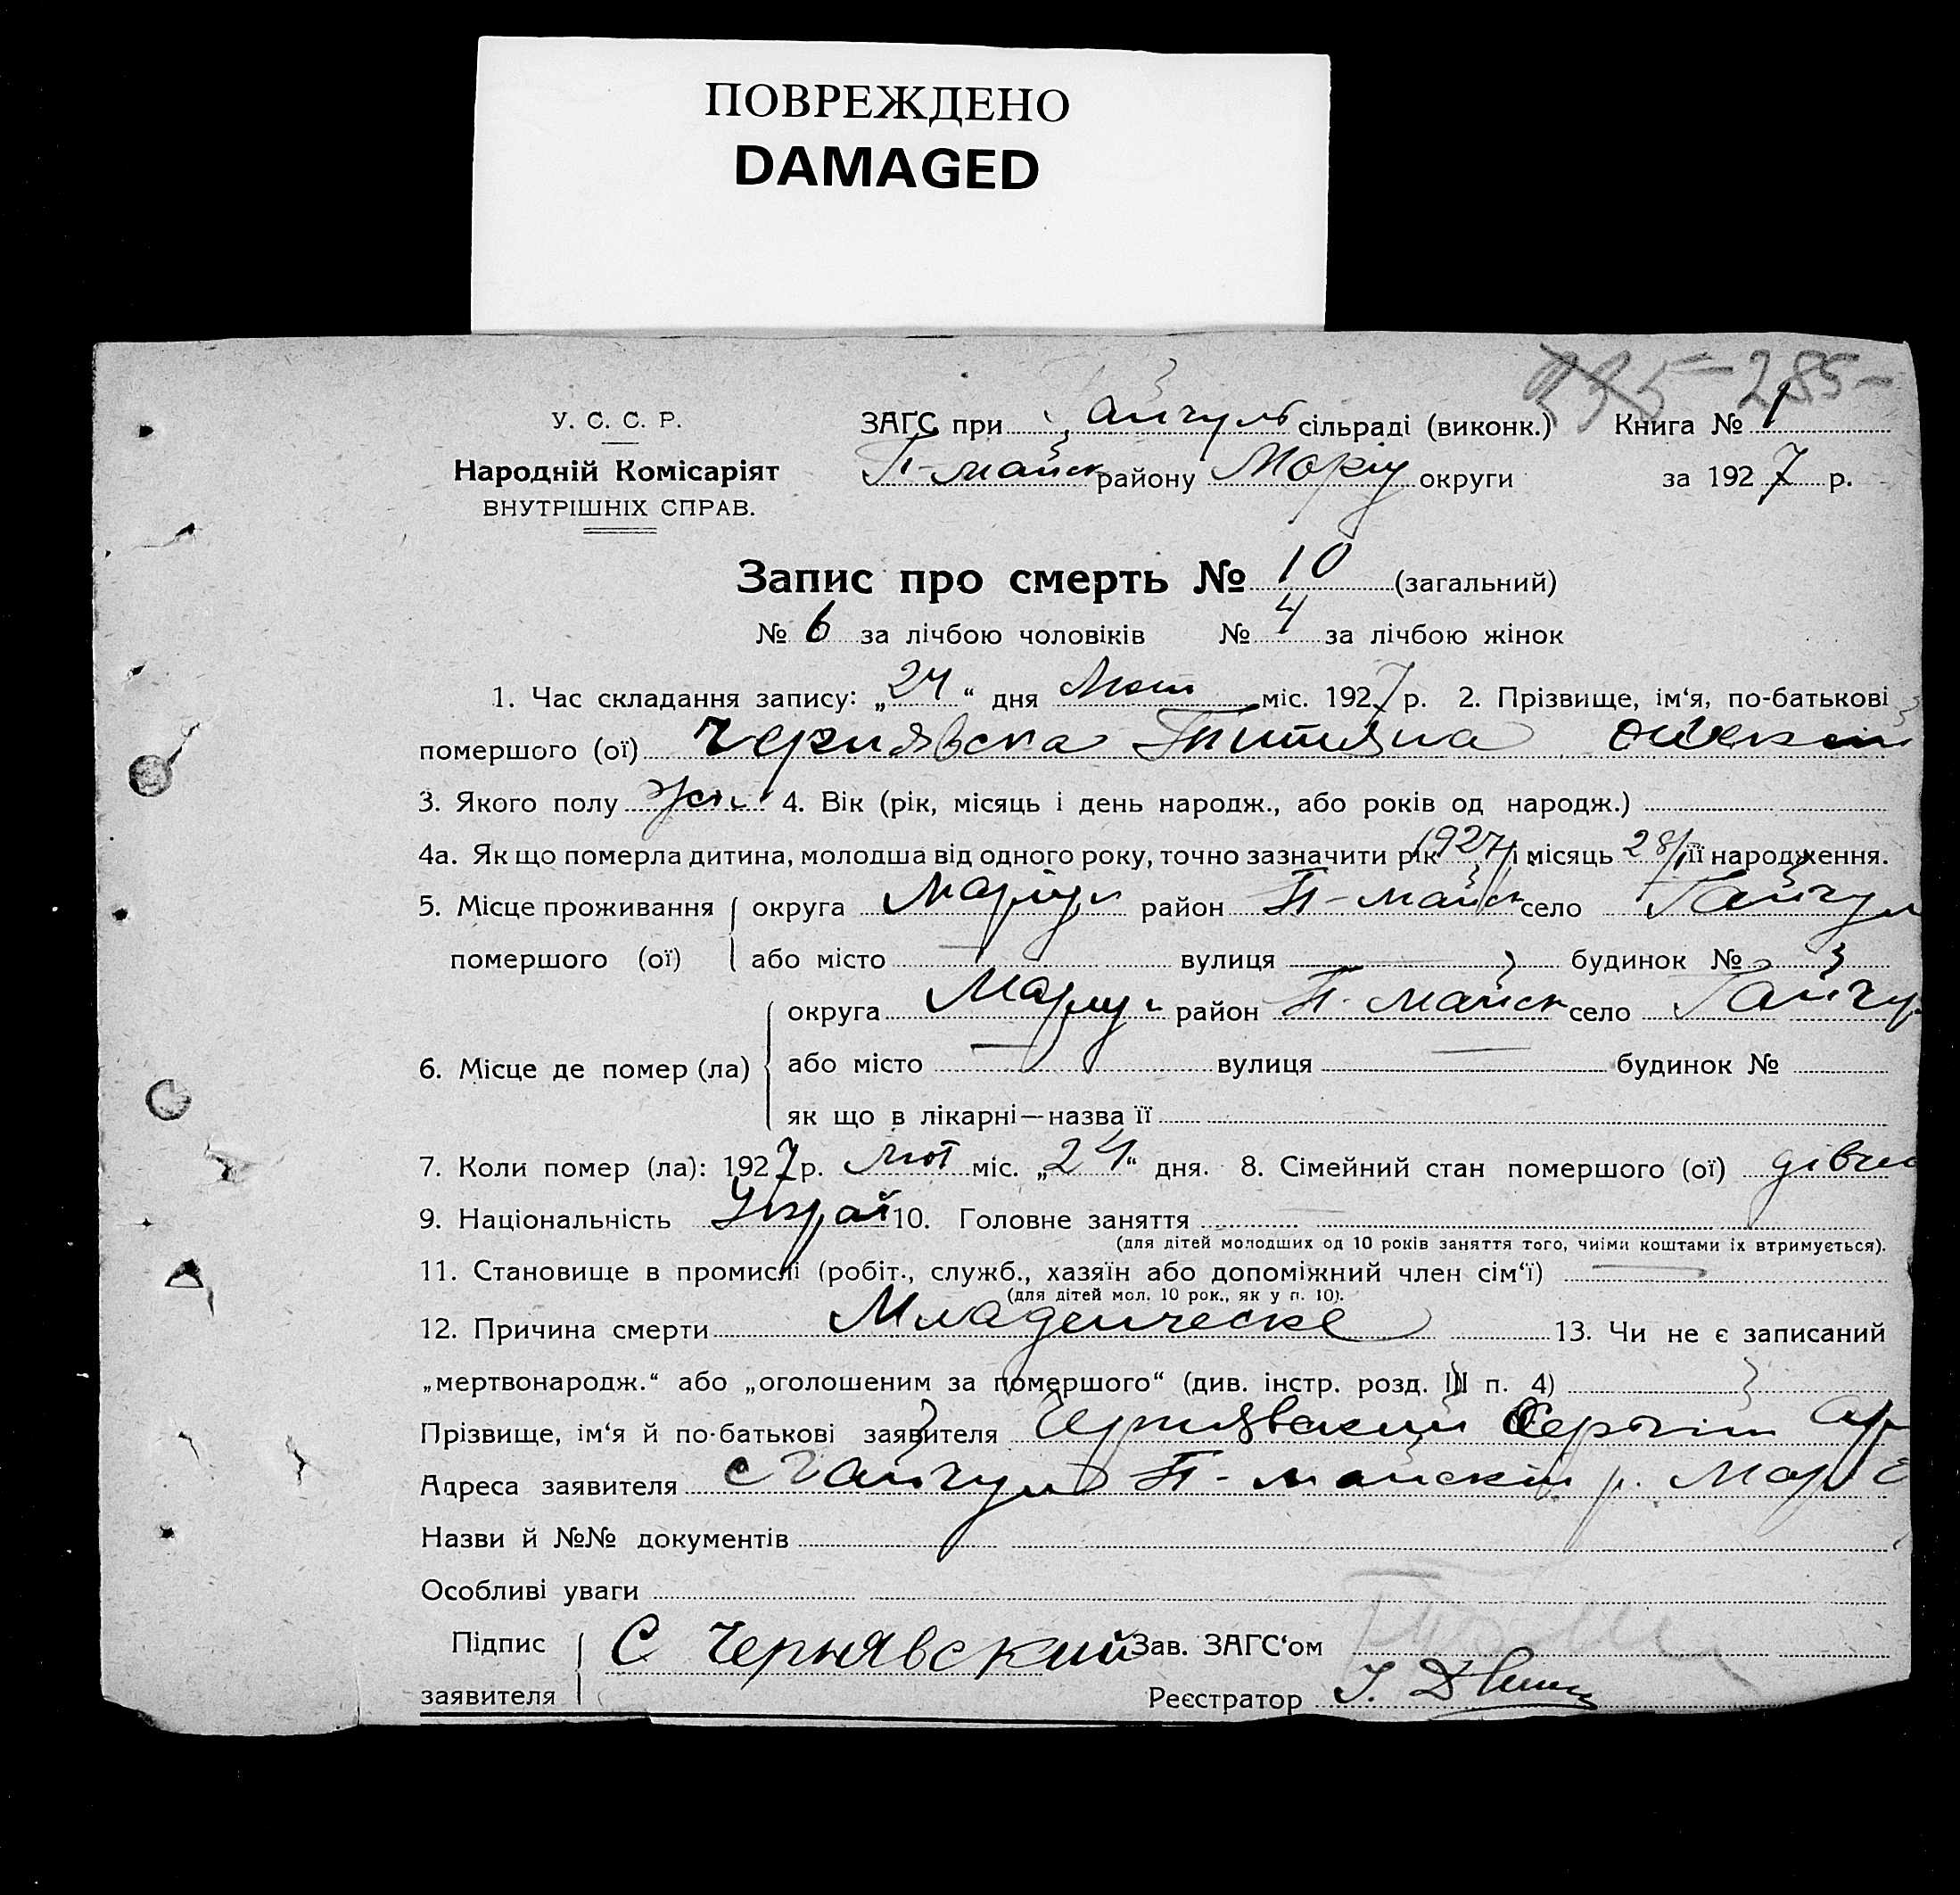 ПОВРЕЖДЕНО
DAMAGED
285-
У. С. С. Р.
Народній Комісаріят
ВНУТРІШНІХ СПРАВ.
ЗАГС при Гайчуль сільраді (виконк.) Книга № 1
П-майск району Марiу округи за 1927 р.
Запис про смерть № 10 (загальний)
№ 6 за лічбою чоловіків № 4 за лічбою жінок
1. Час складання запису: „24“ дня Лют міс. 1927 р. 2. Прізвище, ім‘я, по-батькові
помершого (ої) Чернявска Титяна
3. Якого полу жін 4. Вік (рік, місяць і день народж., або років од народж.)
4а. Як що померла дитина, молодша від одного року, точно зазначити рік 1927 і місяць 28/1 її народження.
5. Місце проживання округа Маріуп район П-майск село Гайчул
помершого (ої) або місто — вулиця — будинок №
округа Маріуп район П-майск село Гайчу
6. Місце де помер (ла) або місто — вулиця — будинок №
як що в лікарні—назва її
7. Коли помер (ла): 1927 р. лют міс. „24“ дня. 8. Сімейний стан помершого (ої) дівчи
9. Національність Украї 10. Головне заняття
(для дітей молодших од 10 років заняття того, чиїми коштами їх втримується).
11. Становище в промислі (робіт., служб., хазяїн або допоміжний член сім‘ї) —
(для дітей мол. 10 рок., як у п. 10).
12. Причина смерти Младенческе 13. Чи не є записаний
„мертвонародж.“ або „оголошеним за помершого“ (див. інстр. розд. III п. 4)
Прізвище, ім‘я й по-батькові заявителя Чернявский Сергій
Адреса заявителя с Гайчул П-майский р. Мар
Назви й №№ документів
Особливі уваги
Підпис С Чернявский Зав. ЗАГС‘ом
заявителя Реєстратор